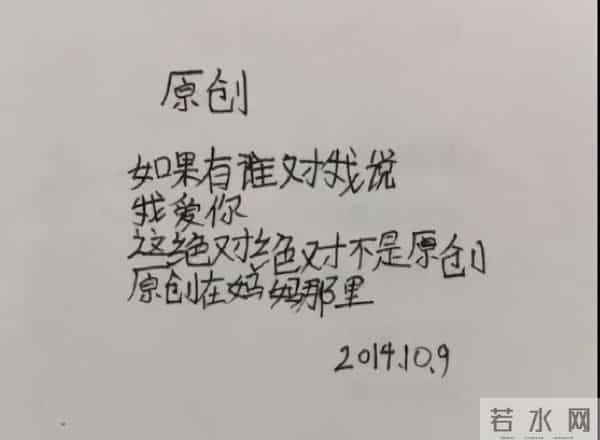 原创
如果有谁对我说
我爱你
这绝对绝对不是原创
原创在妈妈那里
2014.10.9
若水网